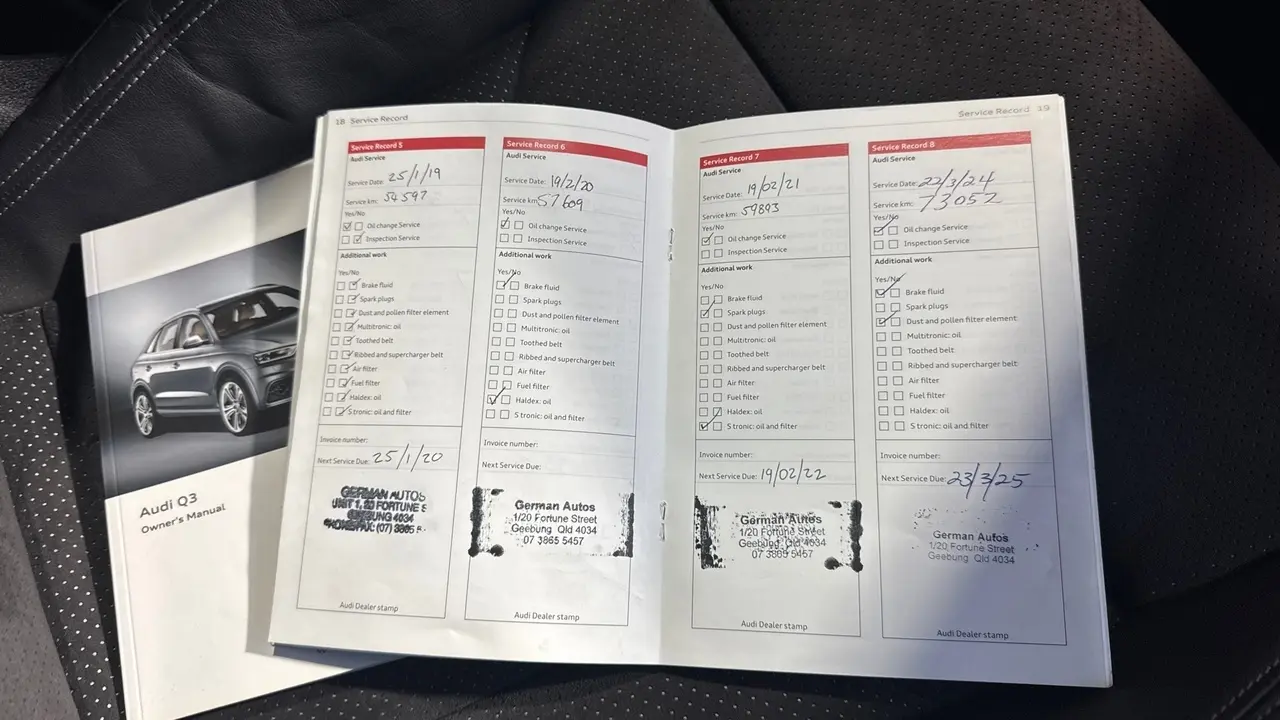 18 Service Record
Service Record 5
Audi Service
Service Date: 25/1/19
Service km: 54597
Yes/No
Oil change Service
Inspection Service
Additional work
Yes/No
Brake fluid
Spark plugs
Dust and pollen filter element
Multitronic: oil
Toothed belt
Ribbed and supercharger belt
Air filter
Fuel filter
Haldex: oil
S tronic: oil and filter
Invoice number:
Next Service Due: 25/1/20
GERMAN AUTOS
UNIT 1, 20 FORTUNE S
GEEBUNG 4034
(07) 3865
Audi Dealer stamp
Service Record 6
Audi Service
Service Date: 19/2/20
Service km: 57609
Yes/No
Oil change Service
Inspection Service
Additional work
Yes/No
Brake fluid
Spark plugs
Dust and pollen filter element
Multitronic: oil
Toothed belt
Ribbed and supercharger belt
Air filter
Fuel filter
Haldex: oil
S tronic: oil and filter
Invoice number:
Next Service Due:
German Autos
1/20 Fortune Street
Geebung Qld 4034
07 3865 5457
Audi Dealer stamp
Service Record 19
Service Record 7
Audi Service
Service Date: 19/02/21
Service km: 59893
Yes/No
Oil change Service
Inspection Service
Additional work
Yes/No
Brake fluid
Spark plugs
Dust and pollen filter element
Multitronic: oil
Toothed belt
Ribbed and supercharger belt
Air filter
Fuel filter
Haldex: oil
S tronic: oil and filter
Invoice number:
Next Service Due: 19/02/22
German Autos
1/20 Fortune Street
Geebung Qld 4034
07 3865 5457
Audi Dealer stamp
Service Record 8
Audi Service
Service Date: 22/3/24
Service km: 73052
Yes/No
Oil change Service
Inspection Service
Additional work
Yes/No
Brake fluid
Spark plugs
Dust and pollen filter element
Multitronic: oil
Toothed belt
Ribbed and supercharger belt
Air filter
Fuel filter
Haldex: oil
S tronic: oil and filter
Invoice number:
Next Service Due: 23/3/25
German Autos
1/20 Fortune Street
Geebung Qld 4034
Audi Dealer stamp
Audi Q3
Owner's Manual